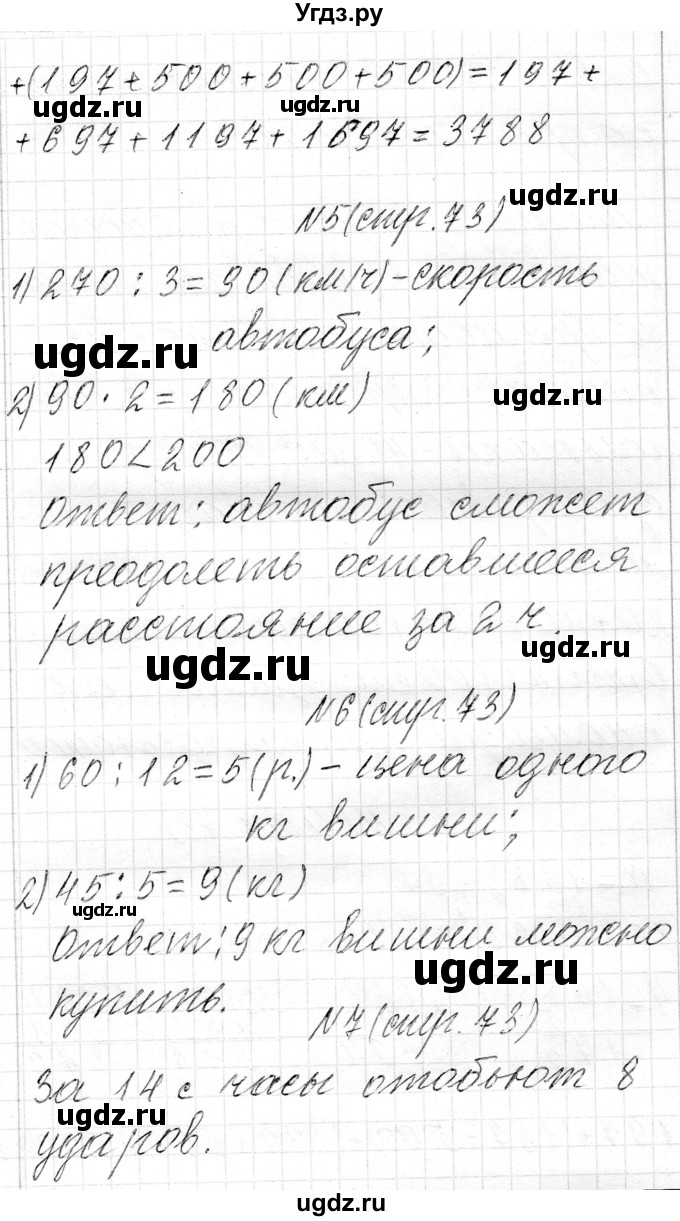 Угдз.ру
+(197+500+500+500)=197+
ugdz.ru ugdz.ru
+697+1197+1697=3788
ugdz.ru
N5(стр.73)
1) 270:3=90(км/ч)-скорость
автобуса;
ugdz.ru
2) 90·2=180(км)
ugdz.ru
180<200
Ответ: автобус сможет
преодолеть оставшееся
расстояние за 2 ч.
ugdz.ru
N6(стр.73)
1) 60:12=5(р.)-цена одного
кг вишни;
2) 45:5=9(кг)
ugdz.ru
Ответ: 9 кг вишни можно
ugdz.ru
купить.
N7(стр.73)
За 14 с часы отобьют 8
ugdz.ru
ударов.
ugdz.ru